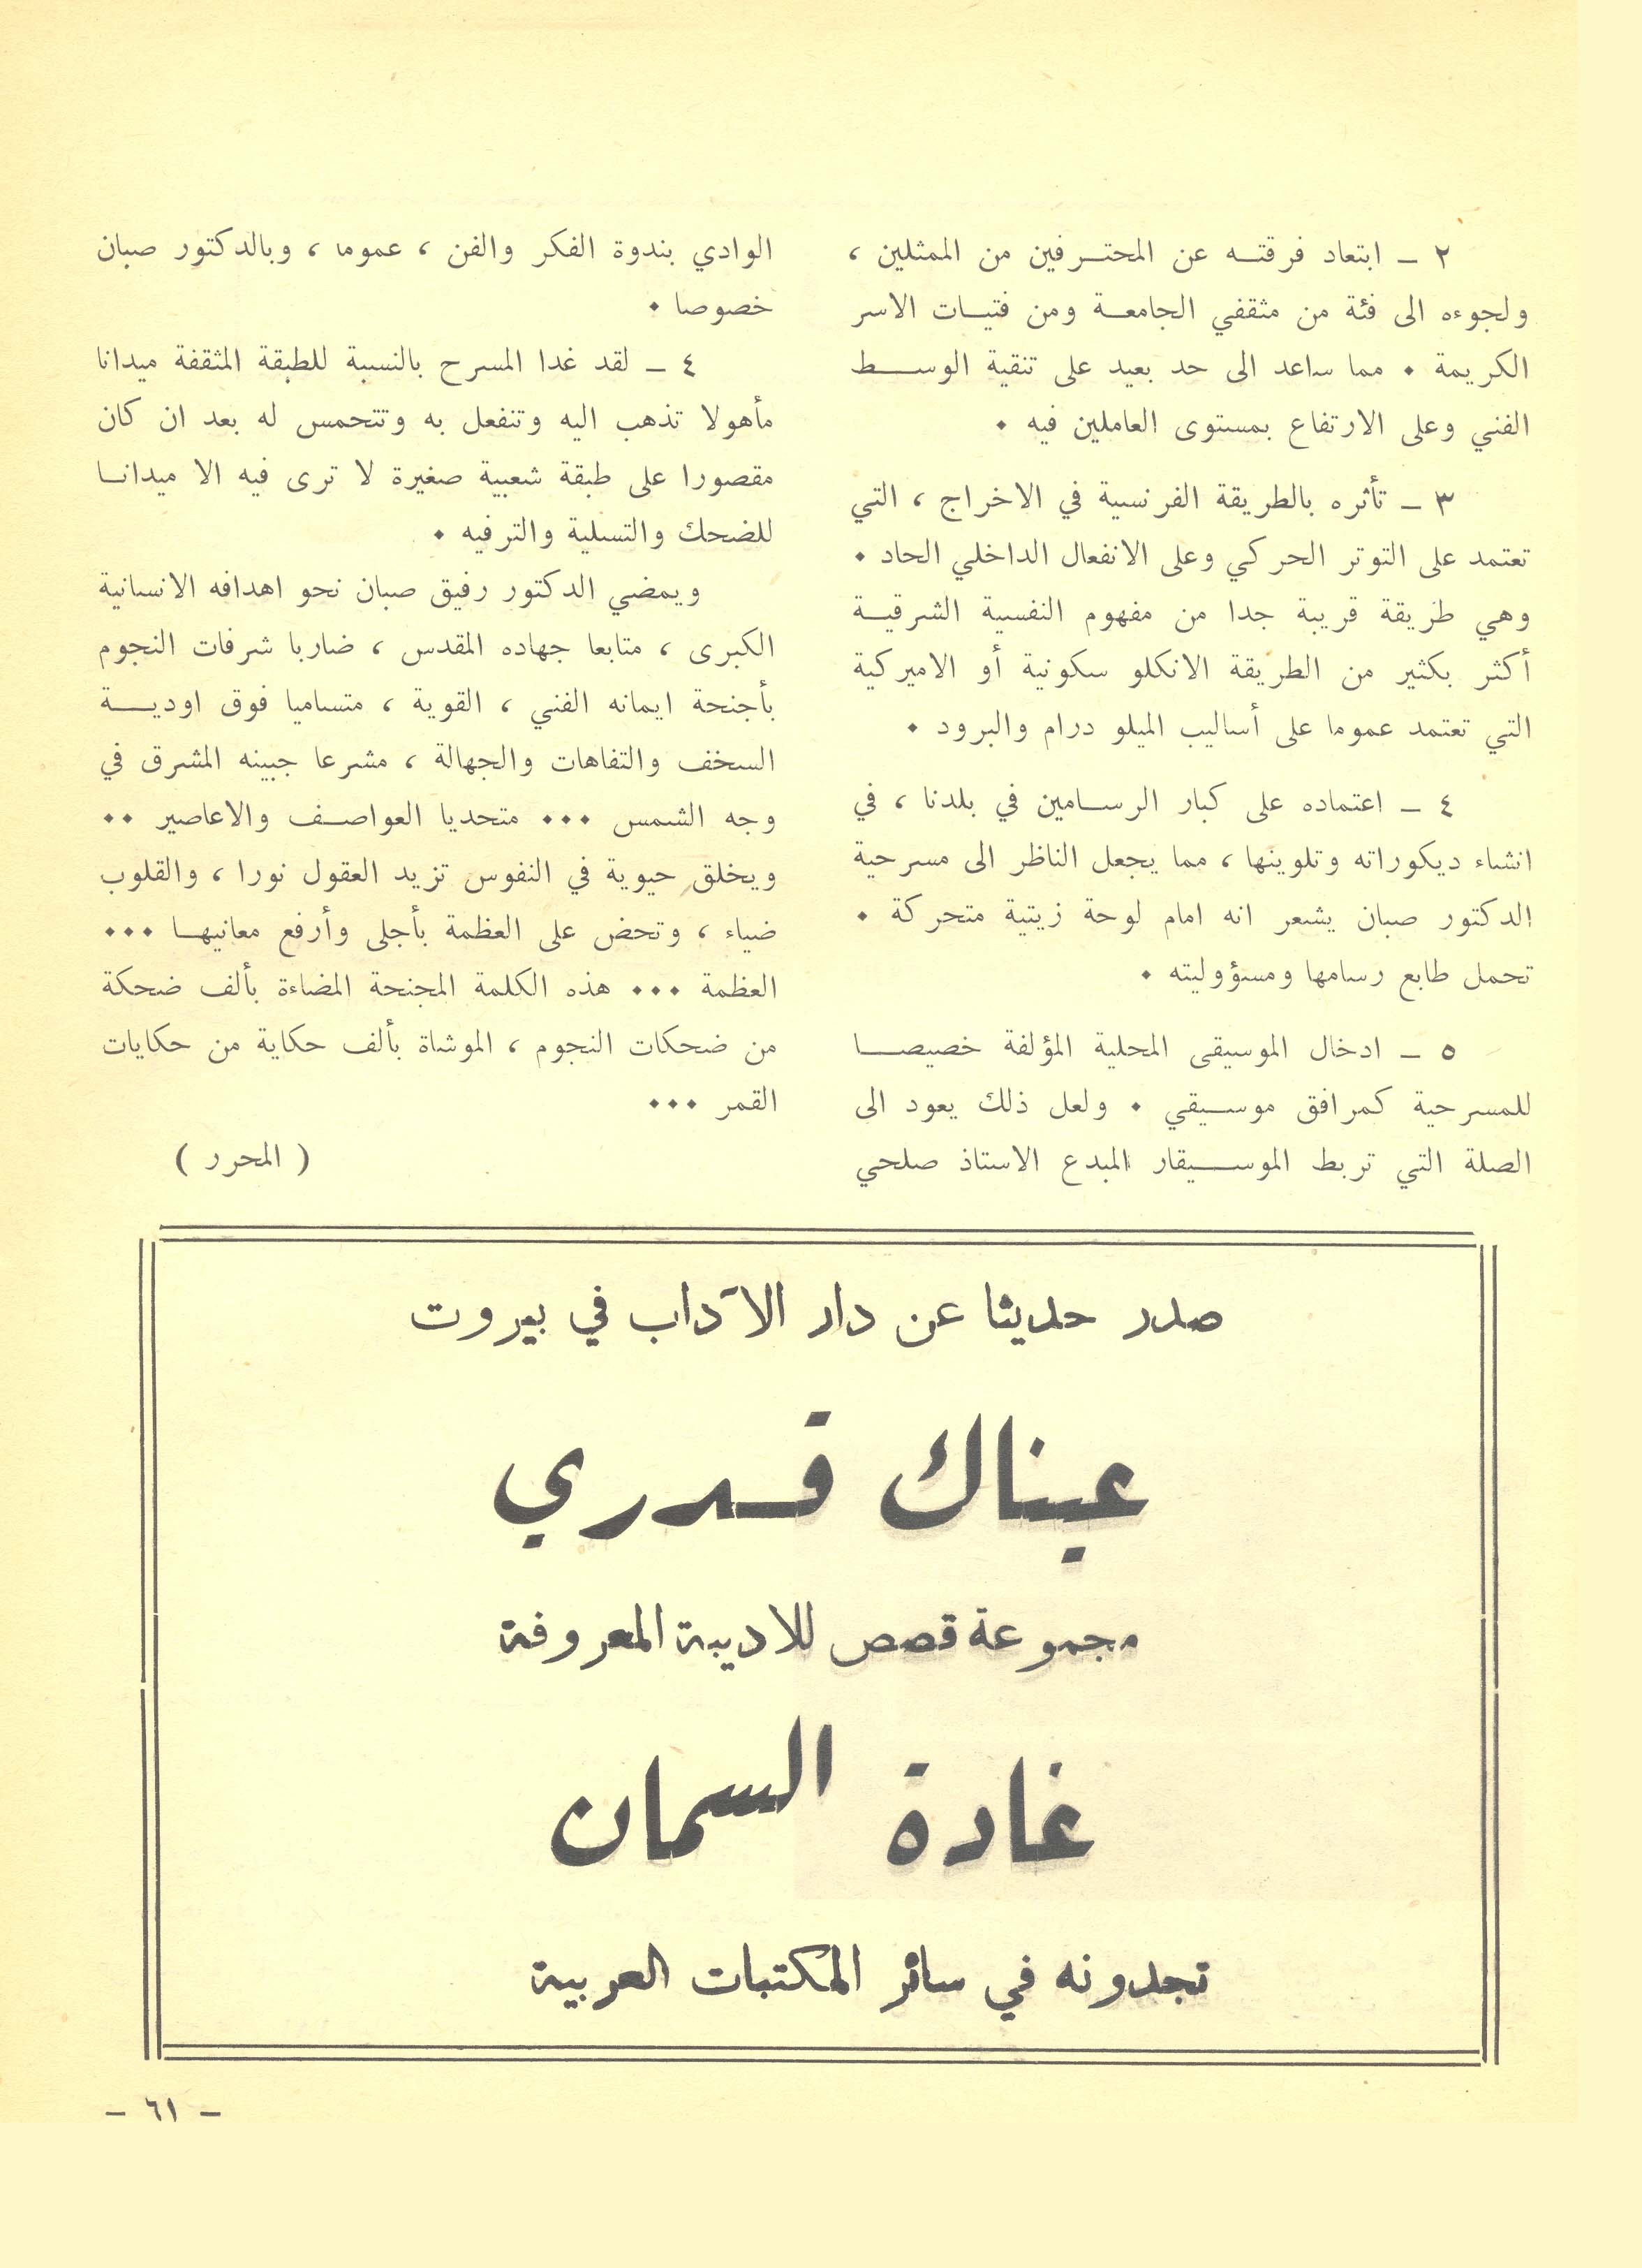 ٢ ــ ابتعاد فرقتــه عن المحتــرفين من الممثلين ،
ولجوءه الى فئة من مثقفي الجامعــة ومن فتيــات الاسر
الكريمة ٠ مما ساعد الى حد بعيد على تنقية الوســط
الفني وعلى الارتفاع بمستوى العاملين فيه ٠
٣ ــ تأثره بالطريقة الفرنسية في الاخراج ، التي
تعتمد على التوتر الحركي وعلى الانفعال الداخلي الحاد ٠
وهي طريقة قريبة جدا من مفهوم النفسية الشرقيــة
أكثر بكثير من الطريقة الانكلو سكونية أو الاميركية
التي تعتمد عموما على أساليب الميلو درام والبرود ٠
٤ ــ اعتماده على كبار الرســامين في بلدنا ، في
انشاء ديكوراته وتلوينها ، مما يجعل الناظر الى مسرحية
الدكتور صبان يشعر انه امام لوحة زيتية متحركة ٠
تحمل طابع رسامها ومسؤوليته ٠
٥ ــ ادخال الموسيقى المحلية المؤلفة خصيصــا
للمسرحية كمرافق موســيقي ٠ ولعل ذلك يعود الى
الصلة التي تربط الموســيقار المبدع الاستاذ صلحي
الوادي بندوة الفكر والفن ، عموما ، وبالدكتور صبان
خصوصا ٠
٤ ــ لقد غدا المسرح بالنسبة للطبقة المثقفة ميدانا
مأهولا تذهب اليه وتنفعل به وتتحمس له بعد ان كان
مقصورا على طبقة شعبية صغيرة لا ترى فيه الا ميدانــا
للضحك والتسلية والترفيه ٠
ويمضي الدكتور رفيق صبان نحو اهدافه الانسانية
الكبرى ، متابعا جهاده المقدس ، ضاربا شرفات النجوم
بأجنحة ايمانه الفني ، القوية ، متساميا فوق اوديــة
السخف والتفاهات والجهالة ، مشرعا جبينه المشرق في
وجه الشمس ٠٠٠ متحديا العواصــف والاعاصير ٠٠
ويخلق حيوية في النفوس تزيد العقول نورا ، والقلوب
ضياء ، وتحض على العظمة بأجلى وأرفع معانيهــا ٠٠٠
العظمة ٠٠٠ هذه الكلمة المجنحة المضاءة بألف ضحكة
من ضحكات النجوم ، الموشاة بألف حكاية من حكايات
القمر ٠٠٠
( المحرر )
صدر حديثا عن دار الآداب في بيروت
عيناك قــدري
مجموعة قصص للاديبة المعروفة
غادة السمان
تجدونه في سائر المكتبات العربية
ــ ٦١ ــ